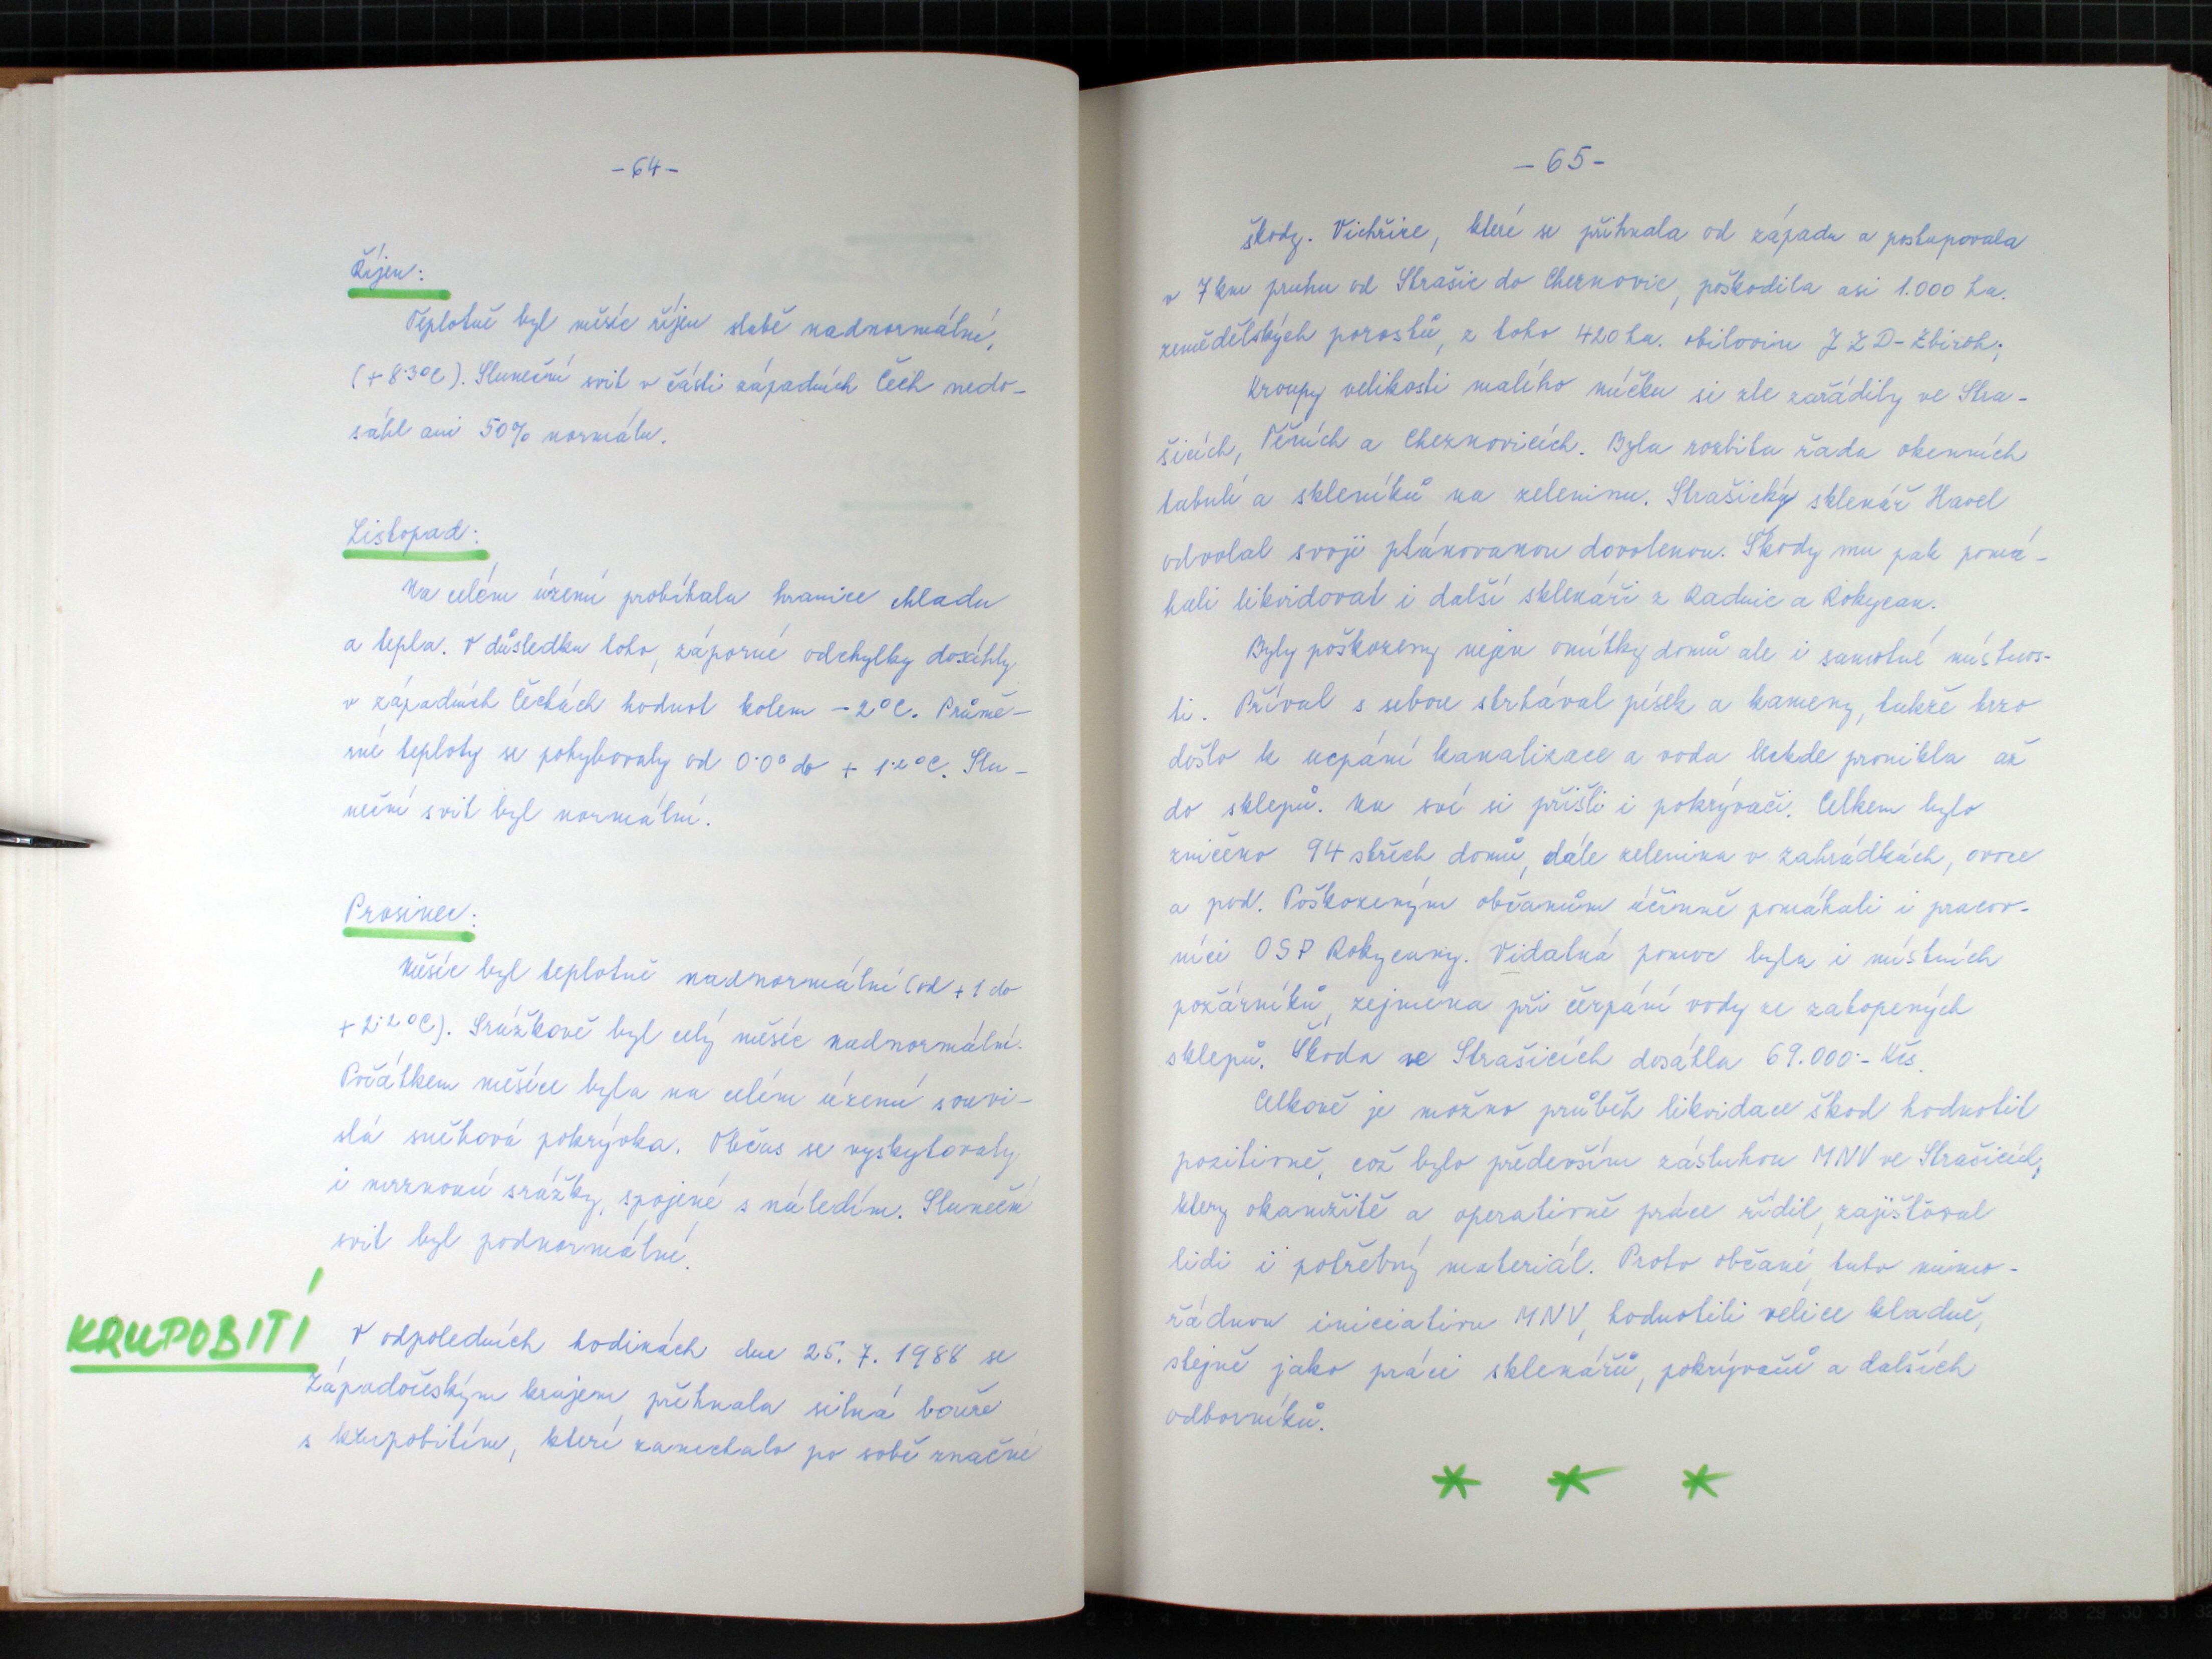 -64-
Říjen:
Teplotně byl měsíc říjen slabě nadnormální,
(+8·3°C). Sluneční svit v části západních Čech nedo-
sáhl ani 50% normálu.
Listopad:
Na celém území probíhala hranice chladu
a tepla. V důsledku toho, záporné odchylky dosáhly
v západních Čechách hodnot kolem -2°C. Průmě-
rné teploty se pohybovaly od 0·0° do + 1·2°C. Slu-
neční svit byl normální.
Prosinec:
Měsíc byl teplotně nadnormální (od +1 do
+2·2°C). Srážkově byl celý měsíc nadnormální.
Počátkem měsíce byla na celém území souvi-
slá sněhová pokrývka. Občas se vyskytovaly
i mrznoucí srážky, spojené s náledím. Sluneční
svit byl podnormální.
KRUPOBITÍ
V odpoledních hodinách dne 25. 7. 1988 se
Západočeským krajem přehnala silná bouře
s krupobitím, které zanechalo po sobě značné
-65-
škody. Vichřice, které se přihnala od západu a postupovala
v 7 km pruhu od Strašic do Cheznovic, poškodila asi 1.000 ha.
zemědělských porostů, z toho 420 ha. obilovin JZD-Zbiroh,
Kroupy velikosti malého míčku si zle zařádily ve Stra-
šicích, Těních a Cheznovicích. Byla rozbita řada okenních
tabulí a skleníků na zeleninu. Strašický sklenář Havel
odvolal svoji plánovanou dovolenou. Škody mu pak pomá-
hali likvidovat i další sklenáři z Radnic a Rokycan.
Byly poškozeny nejen omítky domů ale i samotné místnos-
ti. Příval s sebou strhával písek a kameny, takže brzo
došlo k ucpání kanalizace a voda leckde pronikla až
do sklepů. Na své si přišli i pokrývači. Celkem bylo
zničeno 94 střech domů, dále zelenina v zahrádkách, ovoce
a pod. Poškozeným občanům účinně pomáhali i pracov-
níci OSP Rokycany. Vidatná pomoc byla i místních
požárníků, zejména při čerpání vody ze zatopených
sklepů. Škoda ve Strašicích dosáhla 69.000·- Kčs.
Celkově je možno průběh likvidace škod hodnotit
pozitivně, což bylo především zásluhou MNV ve Strašicích,
který okamžitě a operativně práce řídil, zajišťoval
lidi i potřebný materiál. Proto občané, tuto mimo-
řádnou iniciativu MNV, hodnotili velice kladně,
stejně jako práci sklenářů, pokrývačů a dalších
odborníků.
* * *